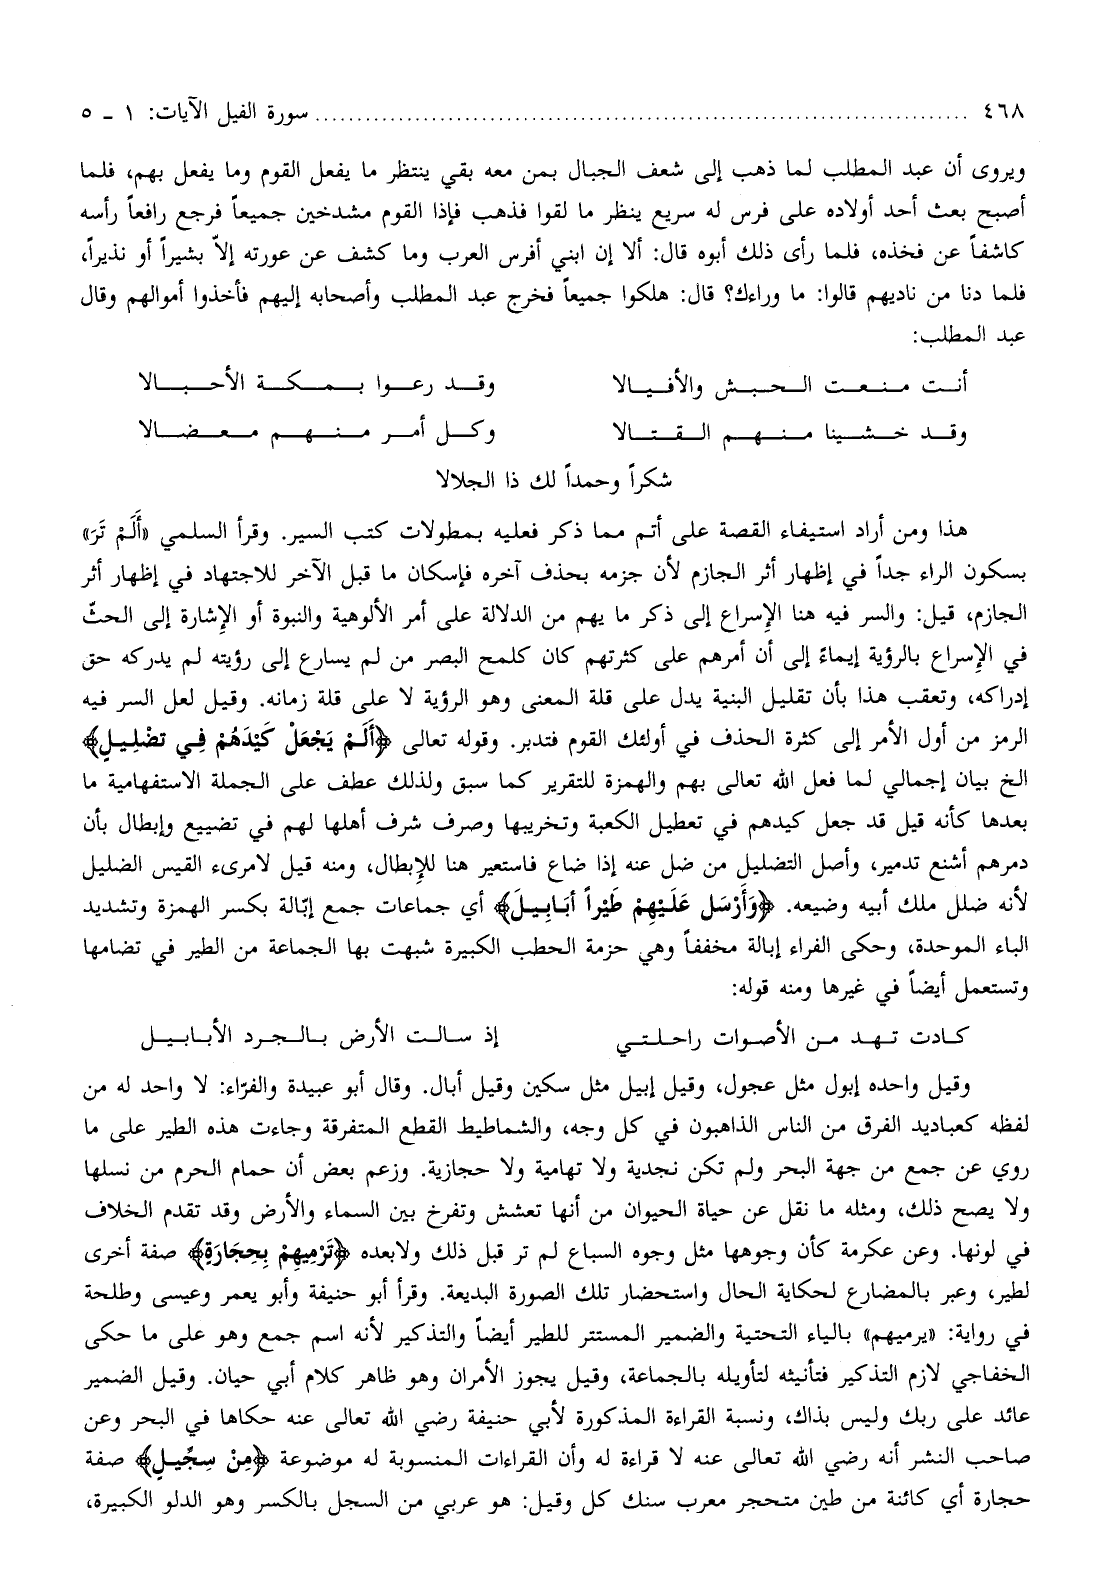 ٤٦٨ ........................................................ سورة الفيل الآيات: ١ ـ ٥
ويروى أن عبد المطلب لما ذهب إلى شعف الجبال بمن معه بقي ينتظر ما يفعل القوم وما يفعل بهم، فلما
أصبح بعث أحد أولاده على فرس له سريع ينظر ما لقوا فذهب فإذا القوم مشدخين جميعاً فرجع رافعاً رأسه
كاشفاً عن فخذه، فلما رأى ذلك أبوه قال: ألا إن ابني أفرس العرب وما كشف عن عورته إلاّ بشيراً أو نذيراً،
فلما دنا من ناديهم قالوا: ما وراءك؟ قال: هلكوا جميعاً فخرج عبد المطلب وأصحابه إليهم فأخذوا أموالهم وقال
عبد المطلب:
أنت منعت الحبش والأفيالا وقد رعوا بمكة الأحبالا
وقد خشينا منهم القتالا وكل أمر منهم معضالا
شكراً وحمداً لك ذا الجلالا
هذا ومن أراد استيفاء القصة على أتم مما ذكر فعليه بمطولات كتب السير. وقرأ السلمي «أَلَمْ تَرَ»
بسكون الراء جداً في إظهار أثر الجازم لأن جزمه بحذف آخره فإسكان ما قبل الآخر للاجتهاد في إظهار أثر
الجازم، قيل: والسر فيه هنا الإسراع إلى ذكر ما يهم من الدلالة على أمر الألوهية والنبوة أو الإشارة إلى الحثّ
في الإسراع بالرؤية إيماءً إلى أن أمرهم على كثرتهم كان كلمح البصر من لم يسارع إلى رؤيته لم يدركه حق
إدراكه، وتعقب هذا بأن تقليل البنية يدل على قلة المعنى وهو الرؤية لا على قلة زمانه. وقيل لعل السر فيه
الرمز من أول الأمر إلى كثرة الحذف في أولئك القوم فتدبر. وقوله تعالى ﴿أَلَمْ يَجْعَلْ كَيْدَهُمْ فِي تضْلِيلٍ﴾
الخ بيان إجمالي لما فعل الله تعالى بهم والهمزة للتقرير كما سبق ولذلك عطف على الجملة الاستفهامية ما
بعدها كأنه قيل قد جعل كيدهم في تعطيل الكعبة وتخريبها وصرف شرف أهلها لهم في تضييع وإبطال بأن
دمرهم أشنع تدمير، وأصل التضليل من ضل عنه إذا ضاع فاستعير هنا للإبطال، ومنه قيل لامرىء القيس الضليل
لأنه ضلل ملك أبيه وضيعه. ﴿وَأَرْسَل عَلَيْهِمْ طَيْراً أَبَابِيلَ﴾ أي جماعات جمع إبّالة بكسر الهمزة وتشديد
الباء الموحدة، وحكى الفراء إبالة مخففاً وهي حزمة الحطب الكبيرة شبهت بها الجماعة من الطير في تضامها
وتستعمل أيضاً في غيرها ومنه قوله:
كادت تهد من الأصوات راحلتي إذ سالت الأرض بالجرد الأبابيل
وقيل واحده إبول مثل عجول، وقيل إبيل مثل سكين وقيل أبال. وقال أبو عبيدة والفرّاء: لا واحد له من
لفظه كعباديد الفرق من الناس الذاهبون في كل وجه، والشماطيط القطع المتفرقة وجاءت هذه الطير على ما
روي عن جمع من جهة البحر ولم تكن نجدية ولا تهامية ولا حجازية. وزعم بعض أن حمام الحرم من نسلها
ولا يصح ذلك، ومثله ما نقل عن حياة الحيوان من أنها تعشش وتفرخ بين السماء والأرض وقد تقدم الخلاف
في لونها. وعن عكرمة كأن وجوهها مثل وجوه السباع لم تر قبل ذلك ولابعده ﴿تَرْمِيهِمْ بِحِجَارَةٍ﴾ صفة أخرى
لطير، وعبر بالمضارع لحكاية الحال واستحضار تلك الصورة البديعة. وقرأ أبو حنيفة وأبو يعمر وعيسى وطلحة
في رواية: «يرميهم» بالياء التحتية والضمير المستتر للطير أيضاً والتذكير لأنه اسم جمع وهو على ما حكى
الخفاجي لازم التذكير فتأنيثه لتأويله بالجماعة، وقيل يجوز الأمران وهو ظاهر كلام أبي حيان. وقيل الضمير
عائد على ربك وليس بذاك، ونسبة القراءة المذكورة لأبي حنيفة رضي الله تعالى عنه حكاها في البحر وعن
صاحب النشر أنه رضي الله تعالى عنه لا قراءة له وأن القراءات المنسوبة له موضوعة ﴿مِنْ سِجِّيلٍ﴾ صفة
حجارة أي كائنة من طين متحجر معرب سنك كل وقيل: هو عربي من السجل بالكسر وهو الدلو الكبيرة،